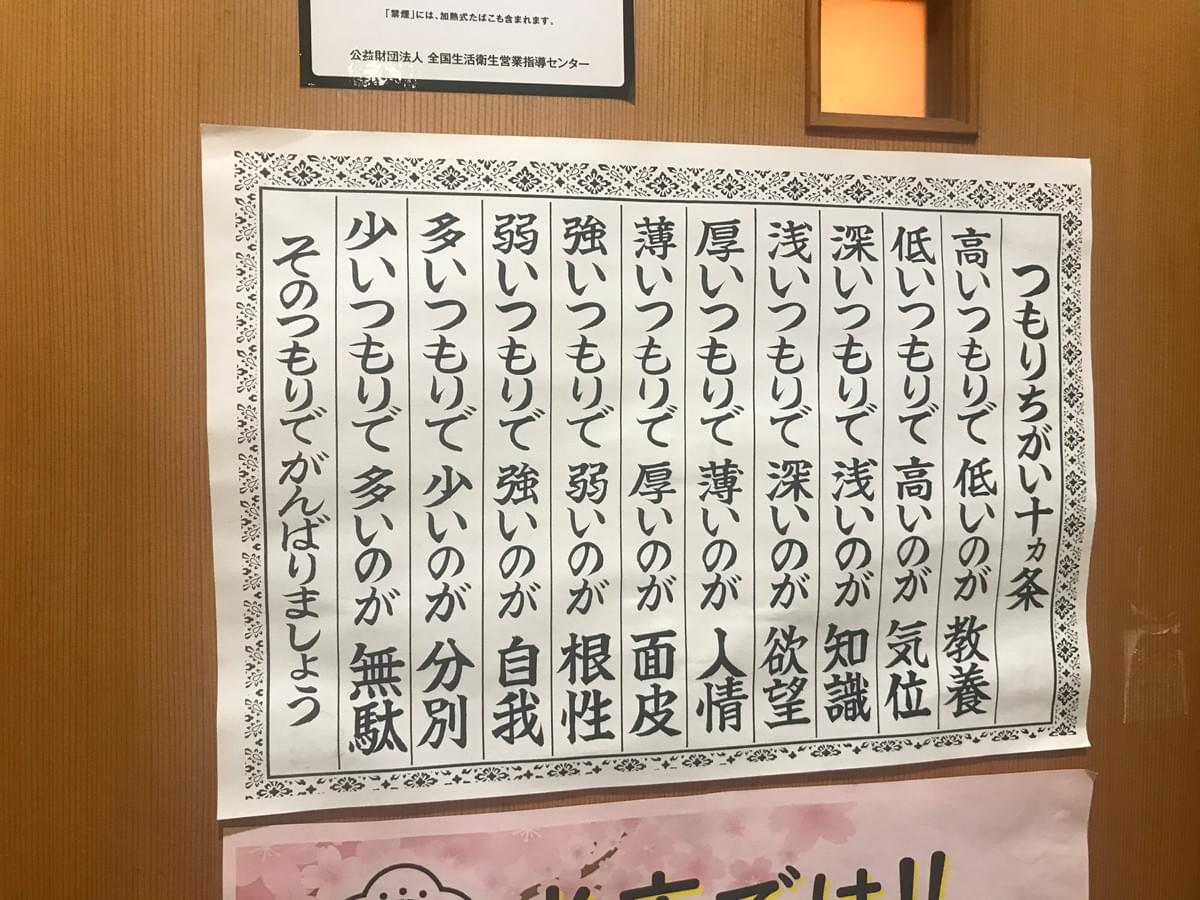 「禁煙」には、加熱式たばこも含まれます。
公益財団法人 全国生活衛生営業指導センター
つもりちがい十カ条
高いつもりで 低いのが 教養
低いつもりで 高いのが 気位
深いつもりで 浅いのが 知識
浅いつもりで 深いのが 欲望
厚いつもりで 薄いのが 人情
薄いつもりで 厚いのが 面皮
強いつもりで 弱いのが 根性
弱いつもりで 強いのが 自我
多いつもりで 少いのが 分別
少いつもりで 多いのが 無駄
そのつもりで がんばりましょう
店では!!